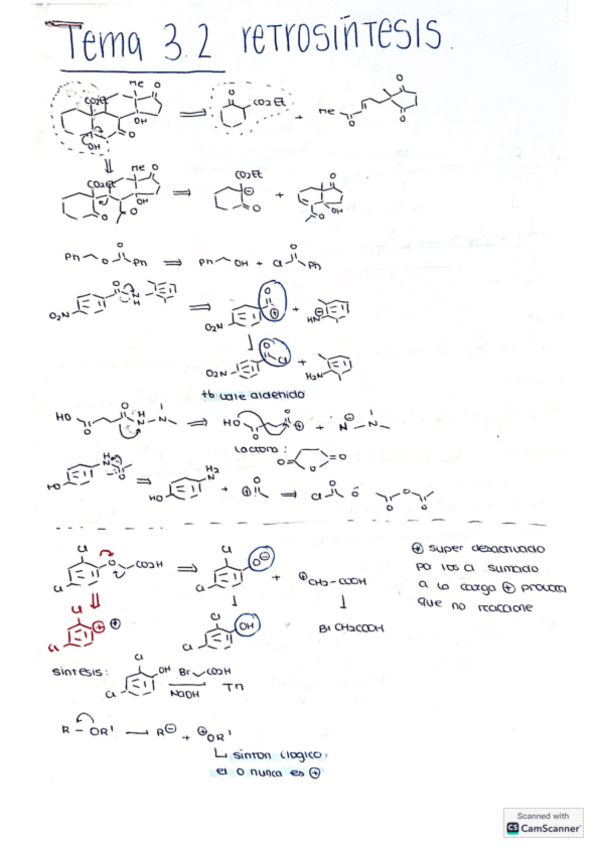 Tema 3.2 retrosíntesis.
Me O
CO2Et
OH
O
OH
⇒
O
CO2Et
+
Me
O
O
O
Me O
CO2Et
OH
O
O
⇒
CO2Et
⊖
O
+
O
O
OH
Ph O Ph
O
⇒
Ph OH + Cl Ph
O
O2N
O
N
H
⇒
O2N
O
⊕
+
HN
⊖
O2N
O
Cl
+
H2N
tb vale aldehido
HO
O
O
H
N N
⇒
HO
O
O
⊕
+
N N
⊖
lactona:
O O O
HO
H
N
O
⇒
HO
H2
N
+
O
⊕
⇒
Cl
O
ó
O O O
Cl
Cl
O COOH
⇒
Cl
Cl
O⊖
+
⊕CH2-COOH
⊕ super desactivado
po los Cl sumado
a la carga ⊕ provoca
que no reaccione
Cl
Cl
⊕ ⊕
Cl
Cl
OH
Br CH2COOH
síntesis:
Cl
Cl
OH
Br COOH
NaOH
TM
R - OR' → R⊖ + ⊕OR'
↳ sinton ilogico
el O nunca es ⊕
Scanned with
CS CamScanner